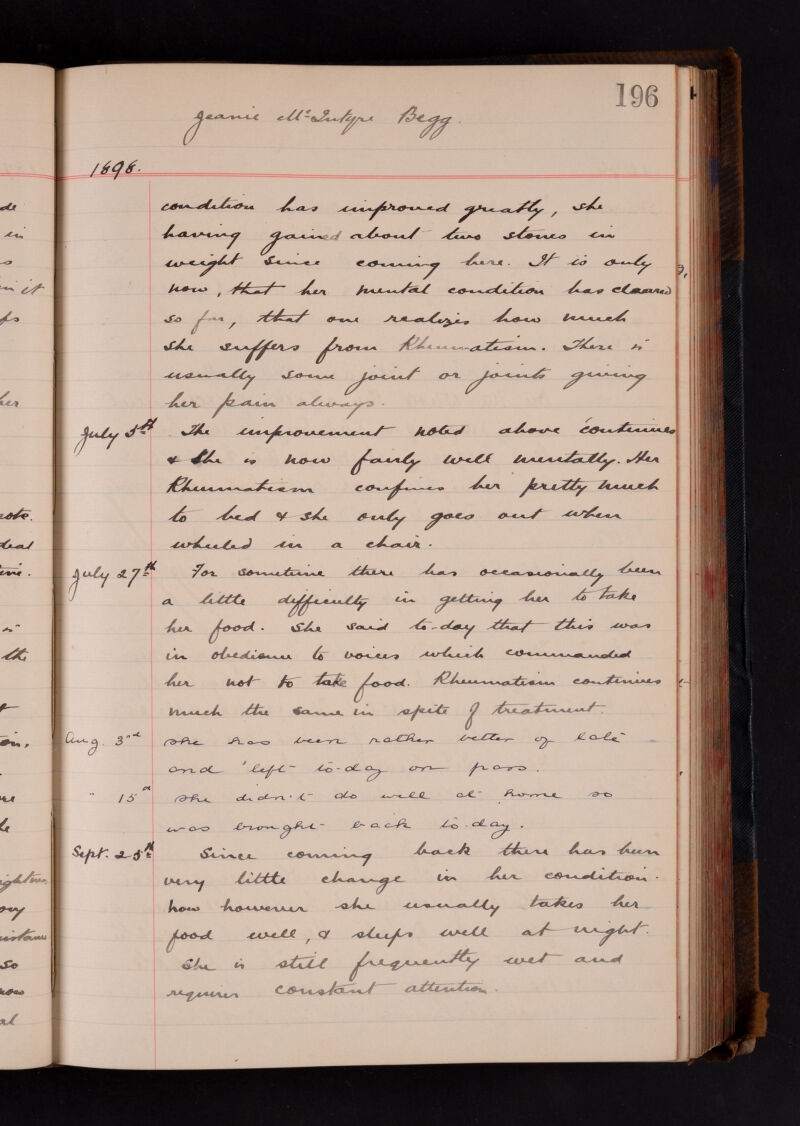 196
Jeanie McIntyre Begg.
1898.
condition has improved greatly, she
having gained about two stones in
weight since coming here. It is only
now, that her mental condition has cleared
so far, that one realizes how much
she suffers from Rheumatism. There is
usually some joint or joints giving
her pain always.
July 5th The improvement noted above continues
& she is now fairly well mentally. Her
Rheumatism confines her pretty much
to bed & she only goes out when
wheeled in a chair.
July 27th For sometime there has occasionally been
a little difficulty in getting her to take
her food. She said to-day that this was
in obedience to voices which commanded
her not to take food. Rheumatism continues
much the same in spite of treatment.
Aug. 3rd She has been rather better of late
and left to-day on pass.
" 15th She didn't do well at home so
was brought back to-day.
Sept. 25th Since coming back there has been
very little change in her condition.
Now however she usually takes her
food well, & sleeps well at night.
She is still frequently wet and
requires constant attention.